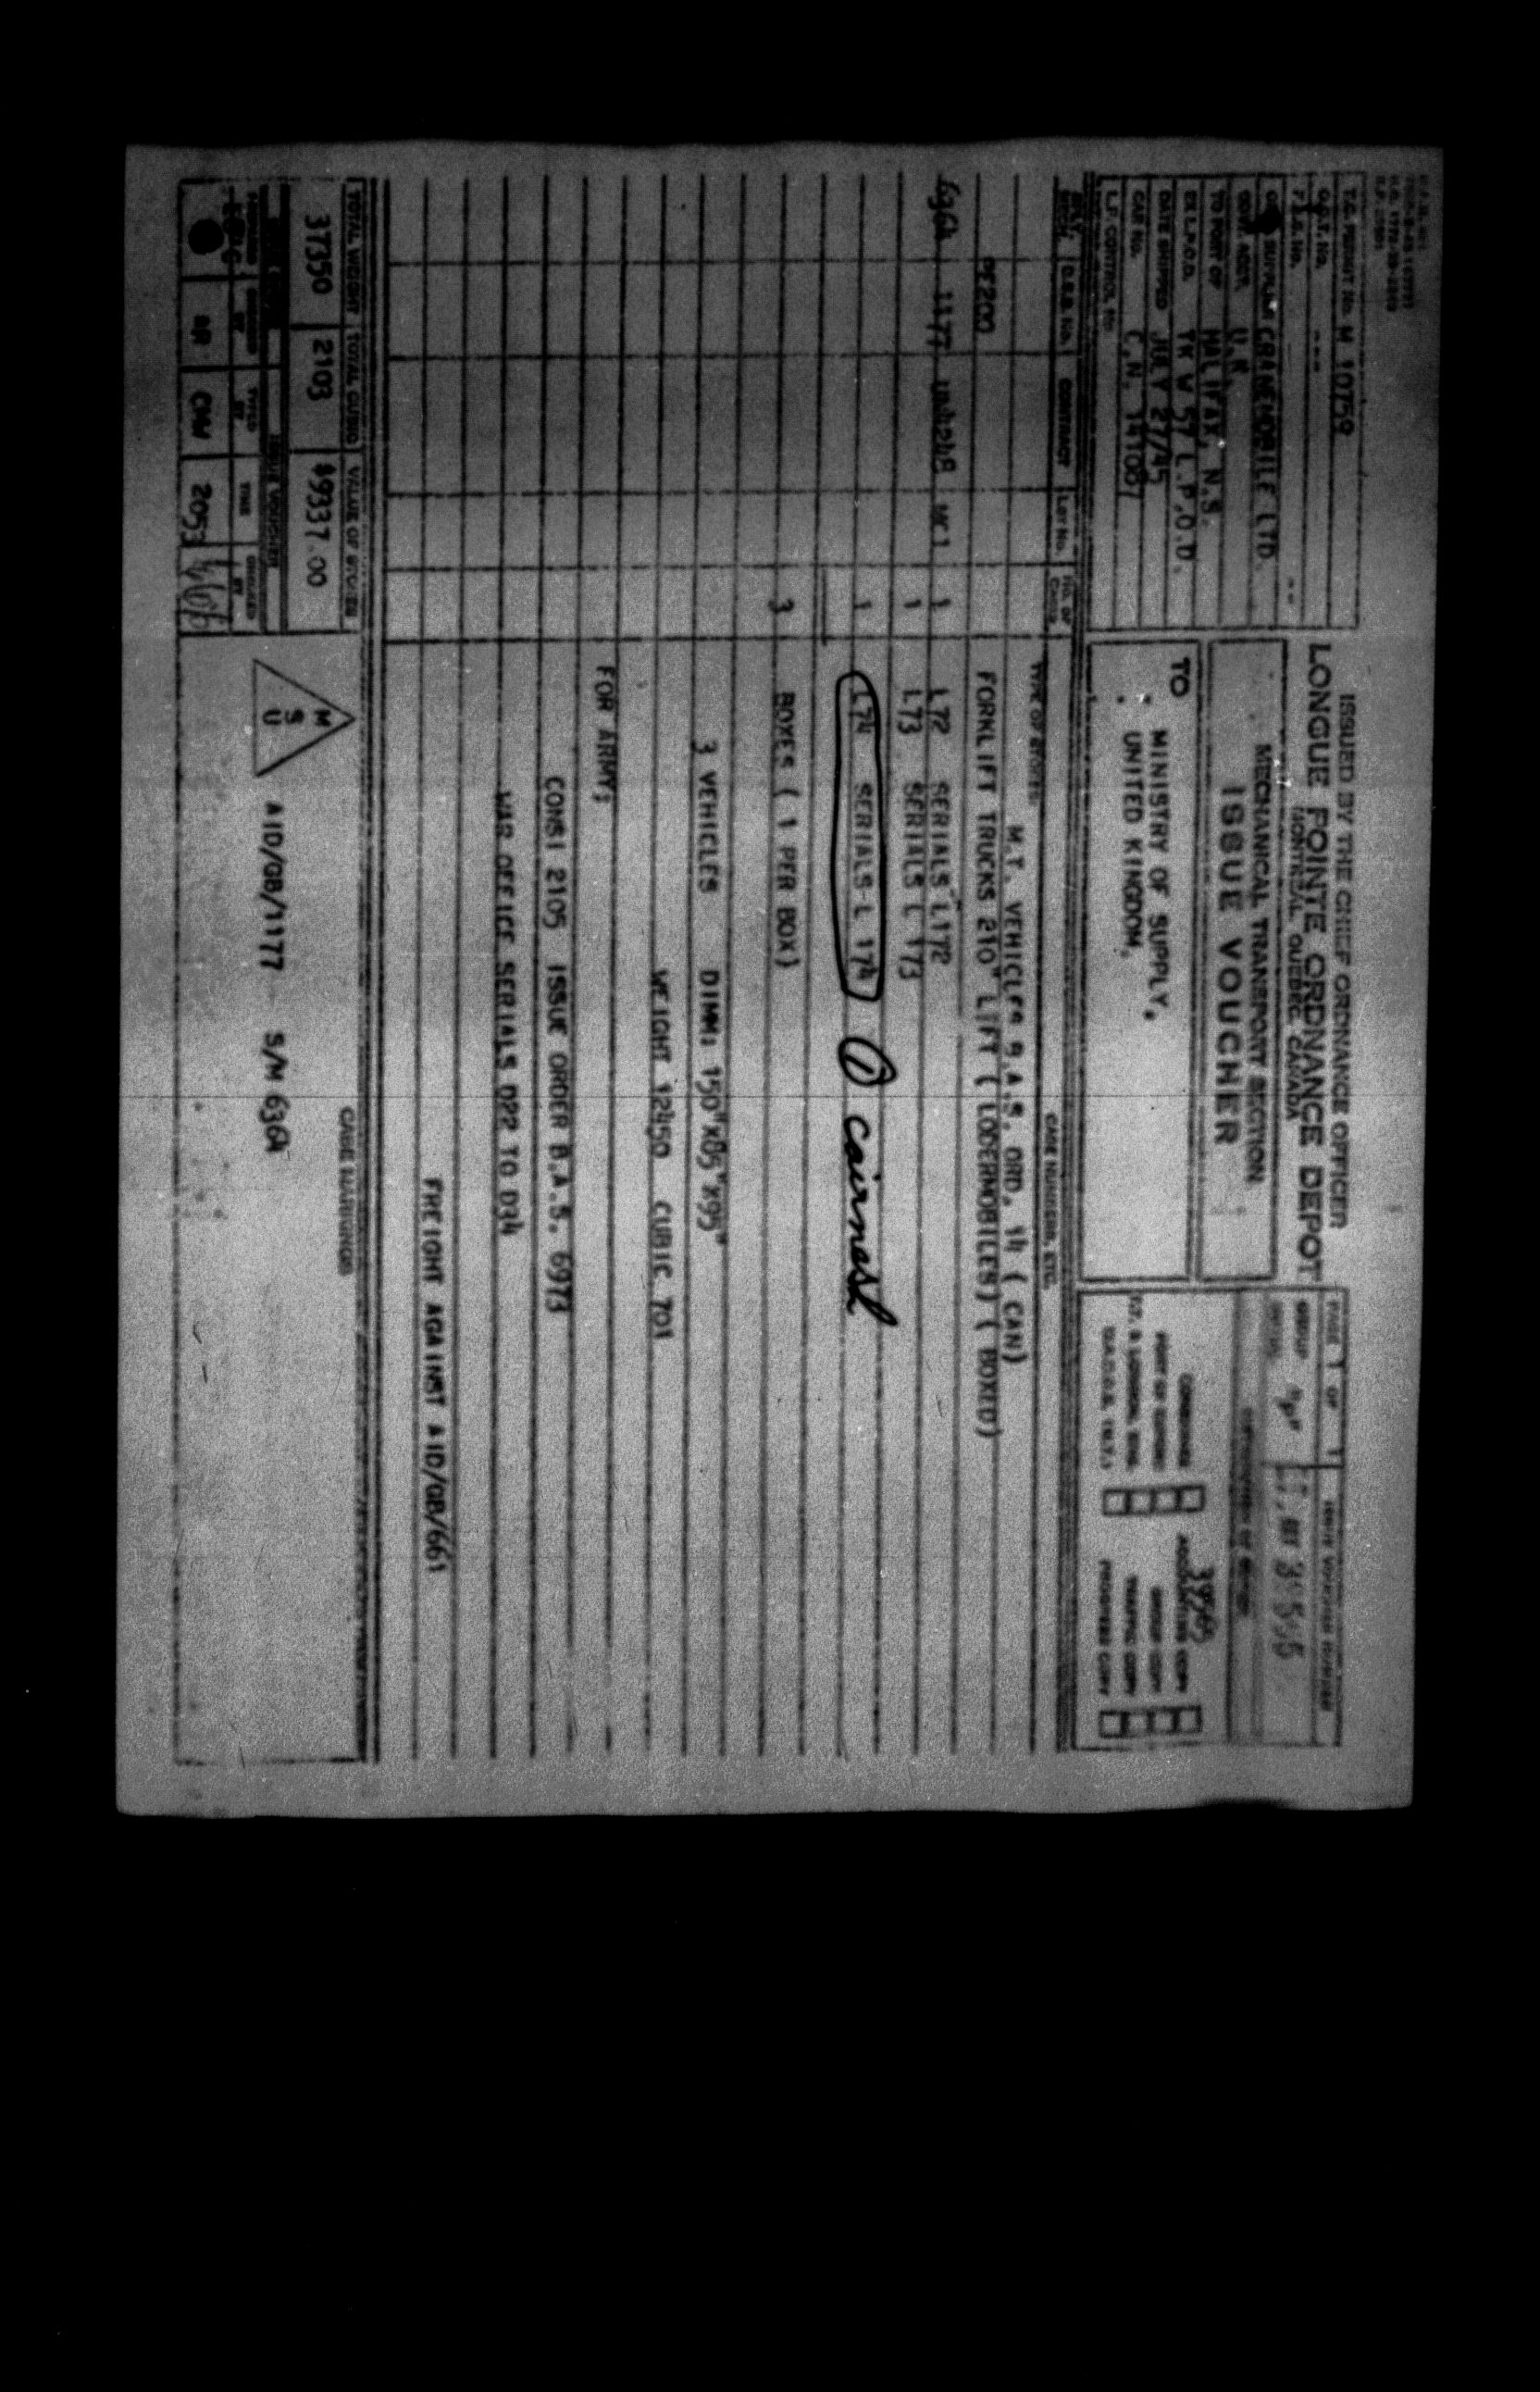 T.C. PERMIT No. M 10759
O.D.T. No. ---
P.I.S. No. --
SUPPLIER CRANEMOBILE LTD.
GOVT. ACCT. U.K.
TO PORT OF HALIFAX, N.S.
EX L.P.O.D. TK W 57 L.P.O.D.
DATE SHIPPED JULY 27/45
CAR No. C.N.
L.P. CONTROL No.
ISSUED BY THE CHIEF ORDNANCE OFFICER
LONGUE POINTE ORDNANCE DEPOT
MONTREAL QUEBEC CANADA
MECHANICAL TRANSPORT SECTION
ISSUE VOUCHER
TO MINISTRY OF SUPPLY,
UNITED KINGDOM.
PAGE 1 OF 1
ISSUE VOUCHER NUMBER
GROUP
CONSIGNEE
ACCOUNTING COPY
GROUP COPY
TRAFFIC COPY
PROOFED COPY
D.S.B. No. CONTRACT Lot No. No. OF CASES TYPE OF STORES CASE NUMBERS, ETC.
M.T. VEHICLES B.A.S. ORD. 14 (CAN)
PF200 FORKLIFT TRUCKS 210" LIFT ( LODERMOBILES) ( BOXED)
636A 1177 MC1 1 L72 SERIALS L172
1 L73 SERIALS L 173
1 L74 SERIALS-L 174 1
3 BOXES ( 1 PER BOX)
3 VEHICLES DIMM: 150"X85"X95"
WEIGHT 12450 CUBIC 701
FOR ARMY;
CONSI 2105 ISSUE ORDER B.A.S. 6973
WAR OFFICE SERIALS D22 TO D34
FREIGHT AGAINST AID/GB/661
TOTAL WEIGHT TOTAL CUBIC VALUE OF STORES
37350 2103 $9337.00
ISSUE VOUCHER
TYPED BY TIME CHECKED BY
CMW 2053
CASE MARKINGS
M
S
U
AID/GB/1177 S/N 636A